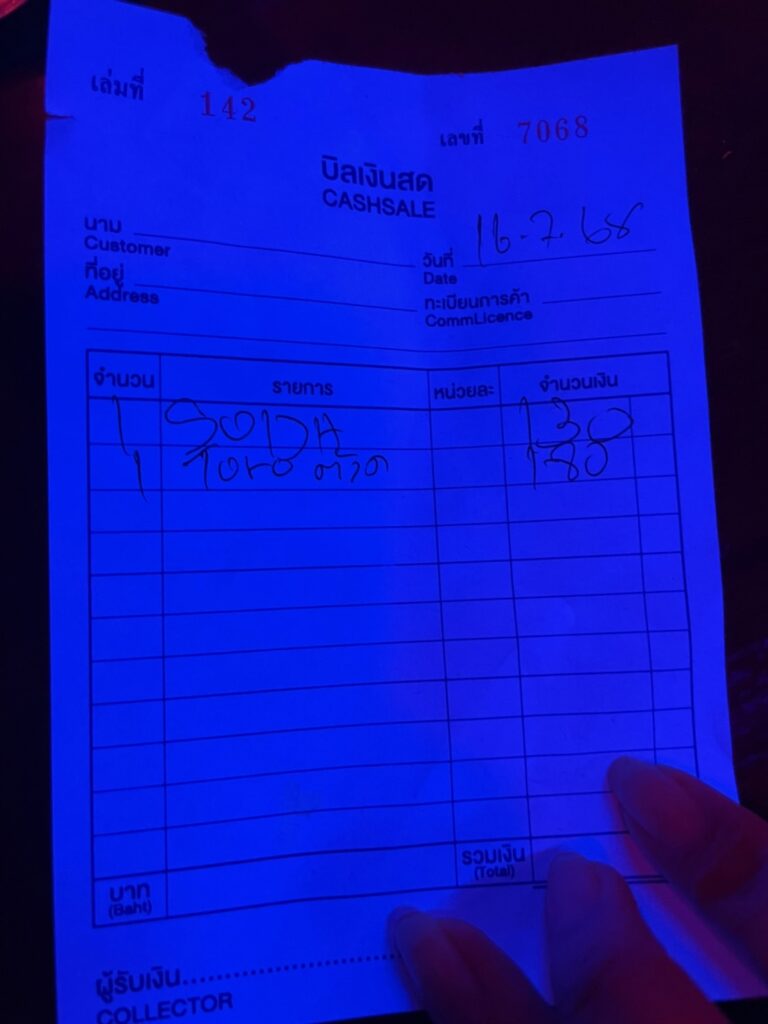 เล่มที่ 142
เลขที่ 7068
บิลเงินสด
CASHSALE
นาม
Customer
วันที่ 16-7-68
Date
ที่อยู่
Address
ทะเบียนการค้า
CommLicence
จำนวน รายการ หน่วยละ จำนวนเงิน
1 SODA 130
1 180
รวมเงิน
(Total)
บาท
(Baht)
ผู้รับเงิน
COLLECTOR